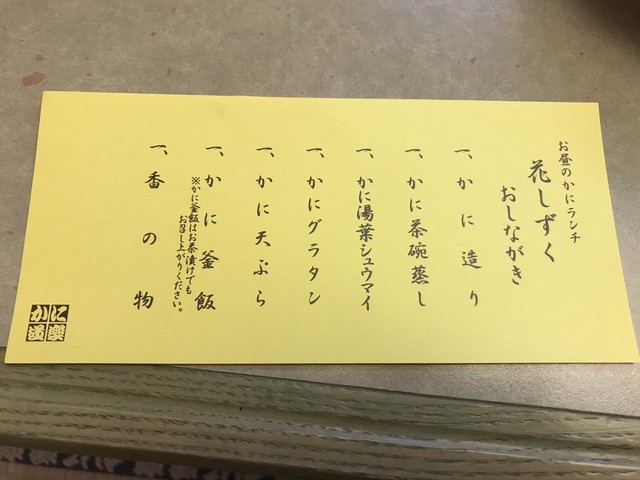 お昼のかにランチ
花しずく
おしながき
一、かに造り
一、かに茶碗蒸し
一、かに湯葉シュウマイ
一、かにグラタン
一、かに天ぷら
一、かに釜飯
※かに釜飯はお茶漬けでも
お召し上がりください。
一、香の物
かに道楽